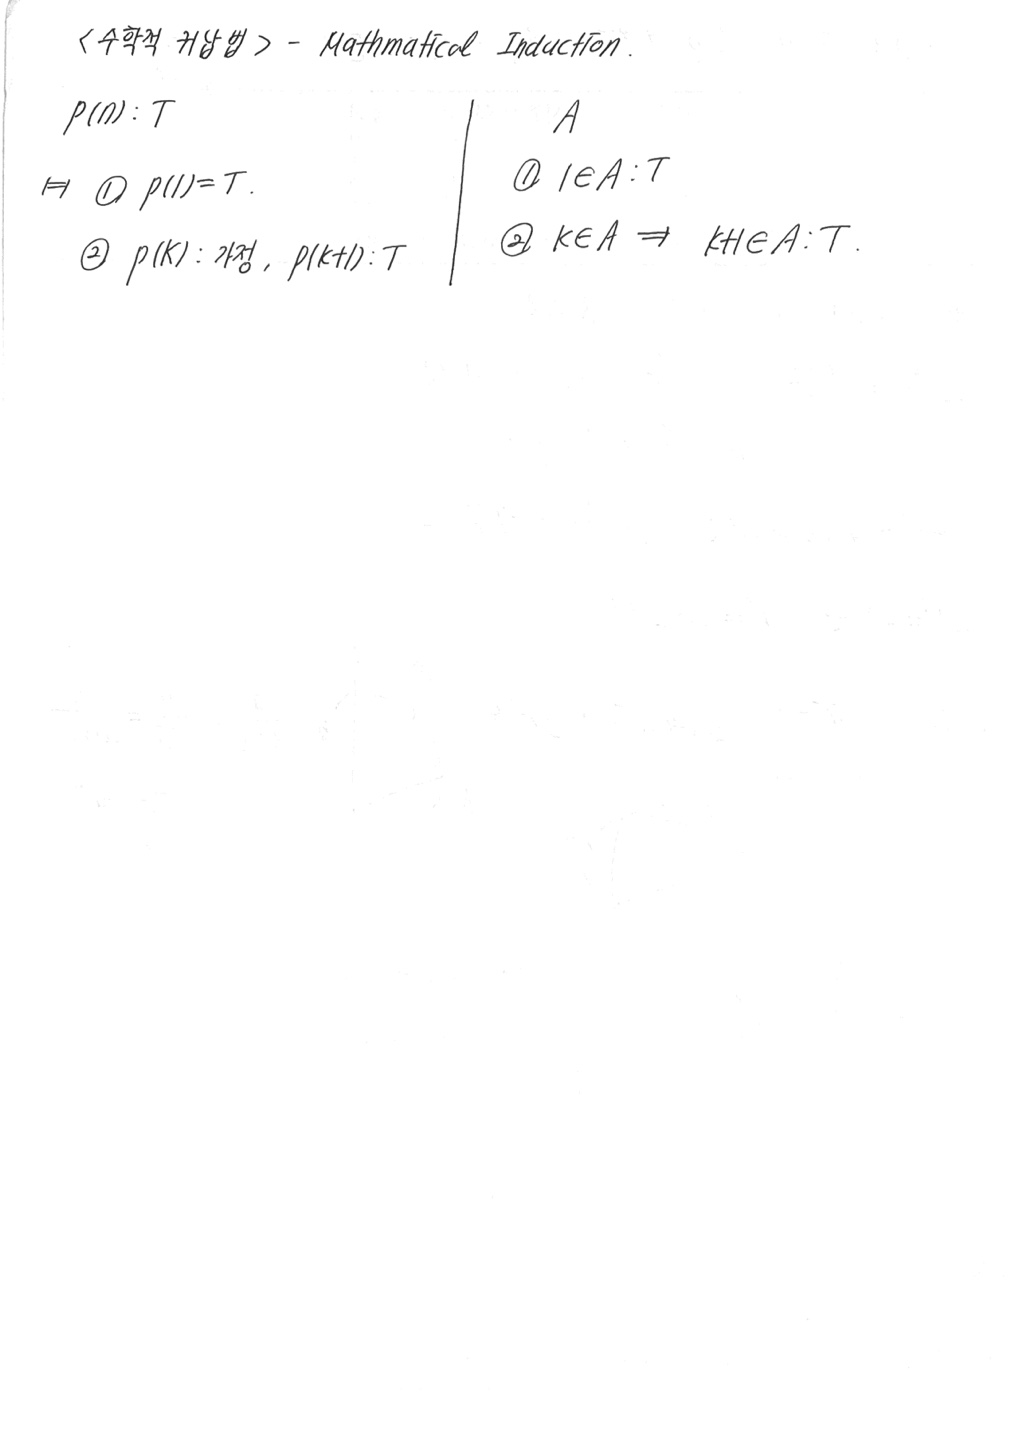 <수학적 귀납법> - Mathmatical Induction.
p(n): T
⊨ ① p(1)=T.
② p(k): 가정, p(k+1): T
A
① 1∈A: T
② k∈A ⇒ k+1∈A: T.